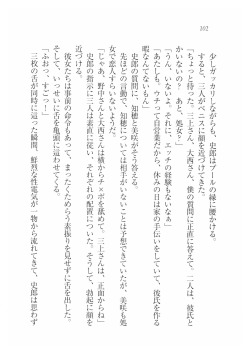 102
少しガッカリしながらも、史郎はプールの縁に腰かける。
すると、三人がペニスに顔を近づけてきた。
「ちょっと待った。三上さん、大西さん、僕の質問に正直に答えて。二人は、彼氏と
かいないの？ あと、処女？」
「うん、いないよ。エッチの経験もないなぁ」
「あたしも。ウチって自営業だから、休みの日は家の手伝いをしていて、彼氏を作る
暇なんてないもん」
史郎の質問に、知穂と美咲がそう答える。
先ほどの言動で、知穂については相手がいないことは予想できていたが、美咲も処
女で恋人すらいないというのは、少し意外な気がする。
「じゃあ、野中さんと大西さんは横からチ×ポを舐めて。三上さんは、正面からね」
史郎の指示に三人は素直に従い、それぞれの配置についた。そうして、勃起に顔を
近づける。
彼女たちは事前の命令もあって、まったくためらう素振りを見せずに舌を出した。
そして、いっせいに舌を亀頭に這わせてくる。
「ふおっ、すごっ……」
三枚の舌が同時に這った瞬間、鮮烈な性電気が一物から流れてきて、史郎は思わず